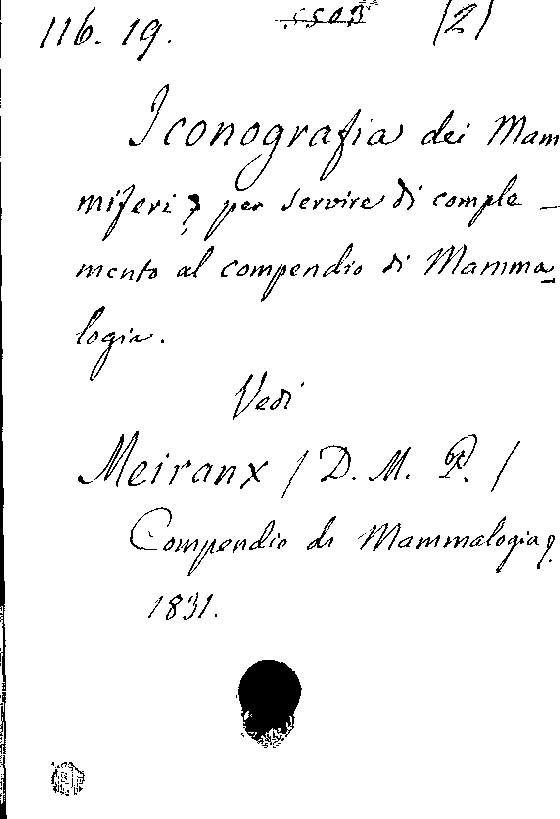 116. 19. 5503 (2)
Iconografia dei Mam
miferi, per servire di comple_
mento al compendio di Mamma_
logia.
Vedi
Meiranx / D. M. P. /
Compendio di Mammalogia
1831.